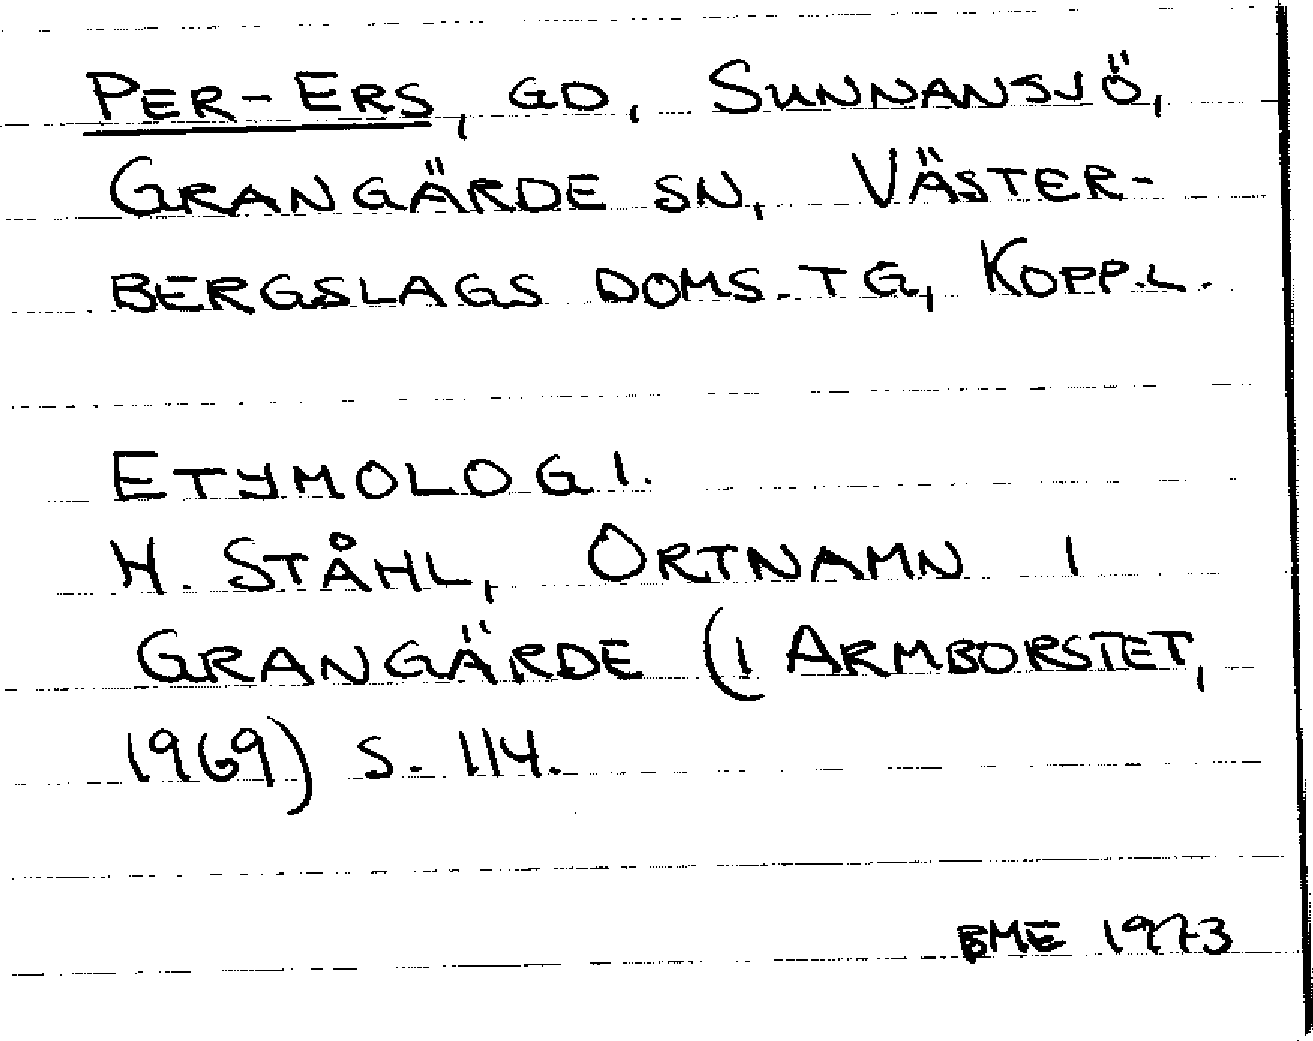 PER-ERS, GD, SUNNANSJÖ,
GRANGÄRDE SN, VÄSTER-
BERGSLAGS DOMS.TG, KOPP.L.
ETYMOLOGI.
H. STÅHL, ORTNAMN I
GRANGÄRDE (I ARMBORSTET,
1969) S. 114.
BME 1973